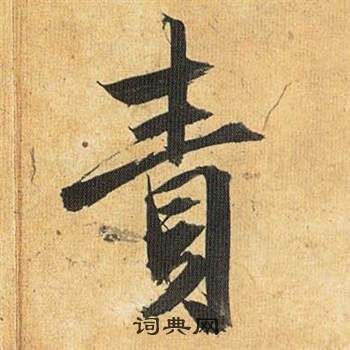 責
词典网